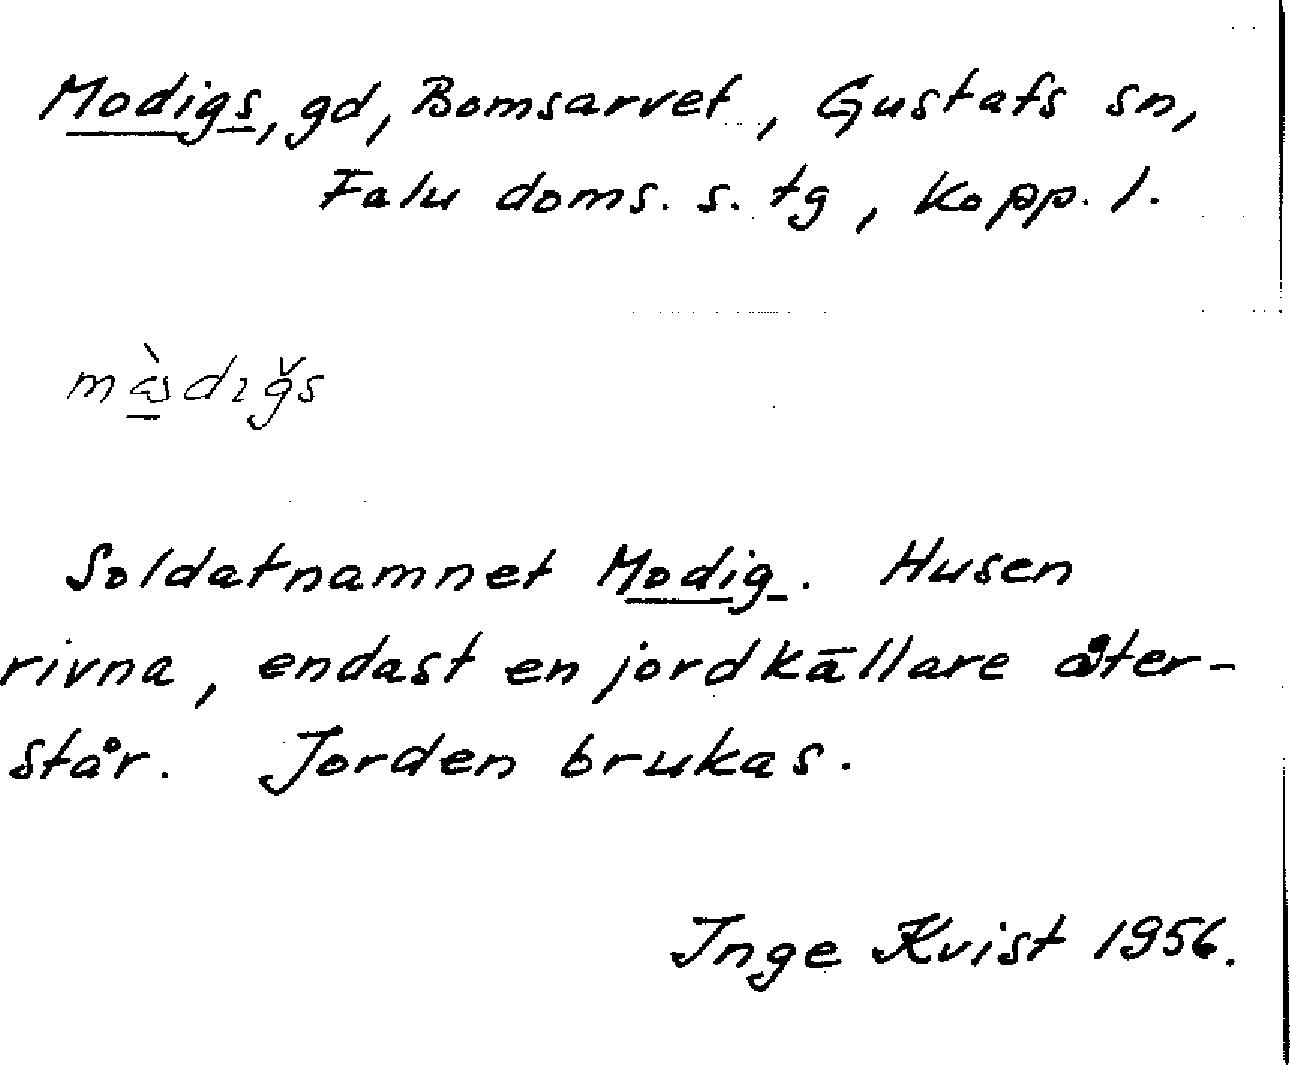 Modigs, gd, Bomsarvet, Gustafs sn,
Falu doms. s. tg, Kopp. l.
Soldatnamnet Modig. Husen
rivna, endast en jordkällare åter-
står. Jorden brukas.
Inge Kvist 1956.